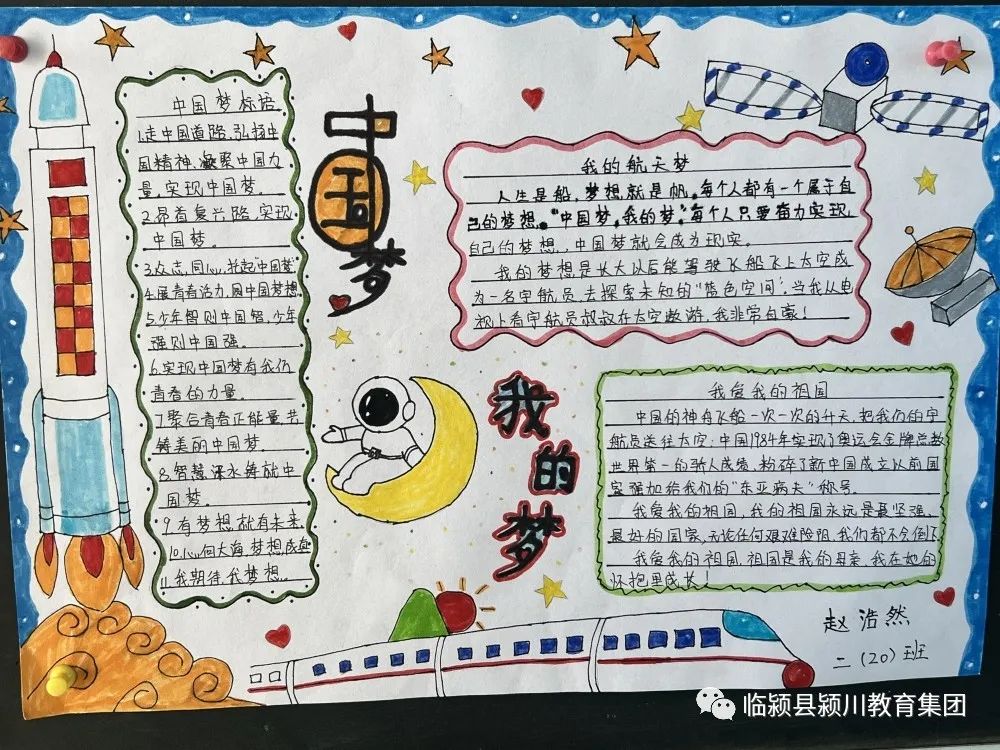 中国梦标语
1.走中国道路,弘扬中
国精神,凝聚中国力
量,实现中国梦。
2.昂首复兴路,实现
中国梦。
3.众志,同心,共起"中国梦"
4.展青春活力,圆中国梦想
5.少年智则中国智,少年
强则中国强。
6.实现中国梦有我们
青春的力量。
7.聚合青春正能量,共
铸美丽中国梦。
8.智慧泽水铸就中
国梦。
9.有梦想,就有未来.
10.心向大海,梦想成真
11.我期待,我梦想。
中国梦
我的航天梦
人生是船,梦想就是帆。每个人都有一个属于自
己的梦想。"中国梦,我的梦。"每个人只要奋力实现
自己的梦想,中国梦就会成为现实。
我的梦想是长大以后能驾驶飞船飞上太空成
为一名宇航员,去探索未知的"蓝色空间",当我从电
视上看宇航员叔叔在太空遨游,我非常自豪!
我的梦
我爱我的祖国
中国的神舟飞船一次一次的升天,把我们的宇
航员送往太空;中国1984年实现了奥运会金牌总数
世界第一的骄人成绩,粉碎了新中国成立以前国
家强加给我们的"东亚病夫"称号。
我爱我的祖国,我的祖国永远是最坚强、
最好的国家,无论任何艰难险阻,我们都不会倒下
我爱我的祖国,祖国是我的母亲,我在她的
怀抱里成长!
赵浩然
二(20)班
临颍县颍川教育集团